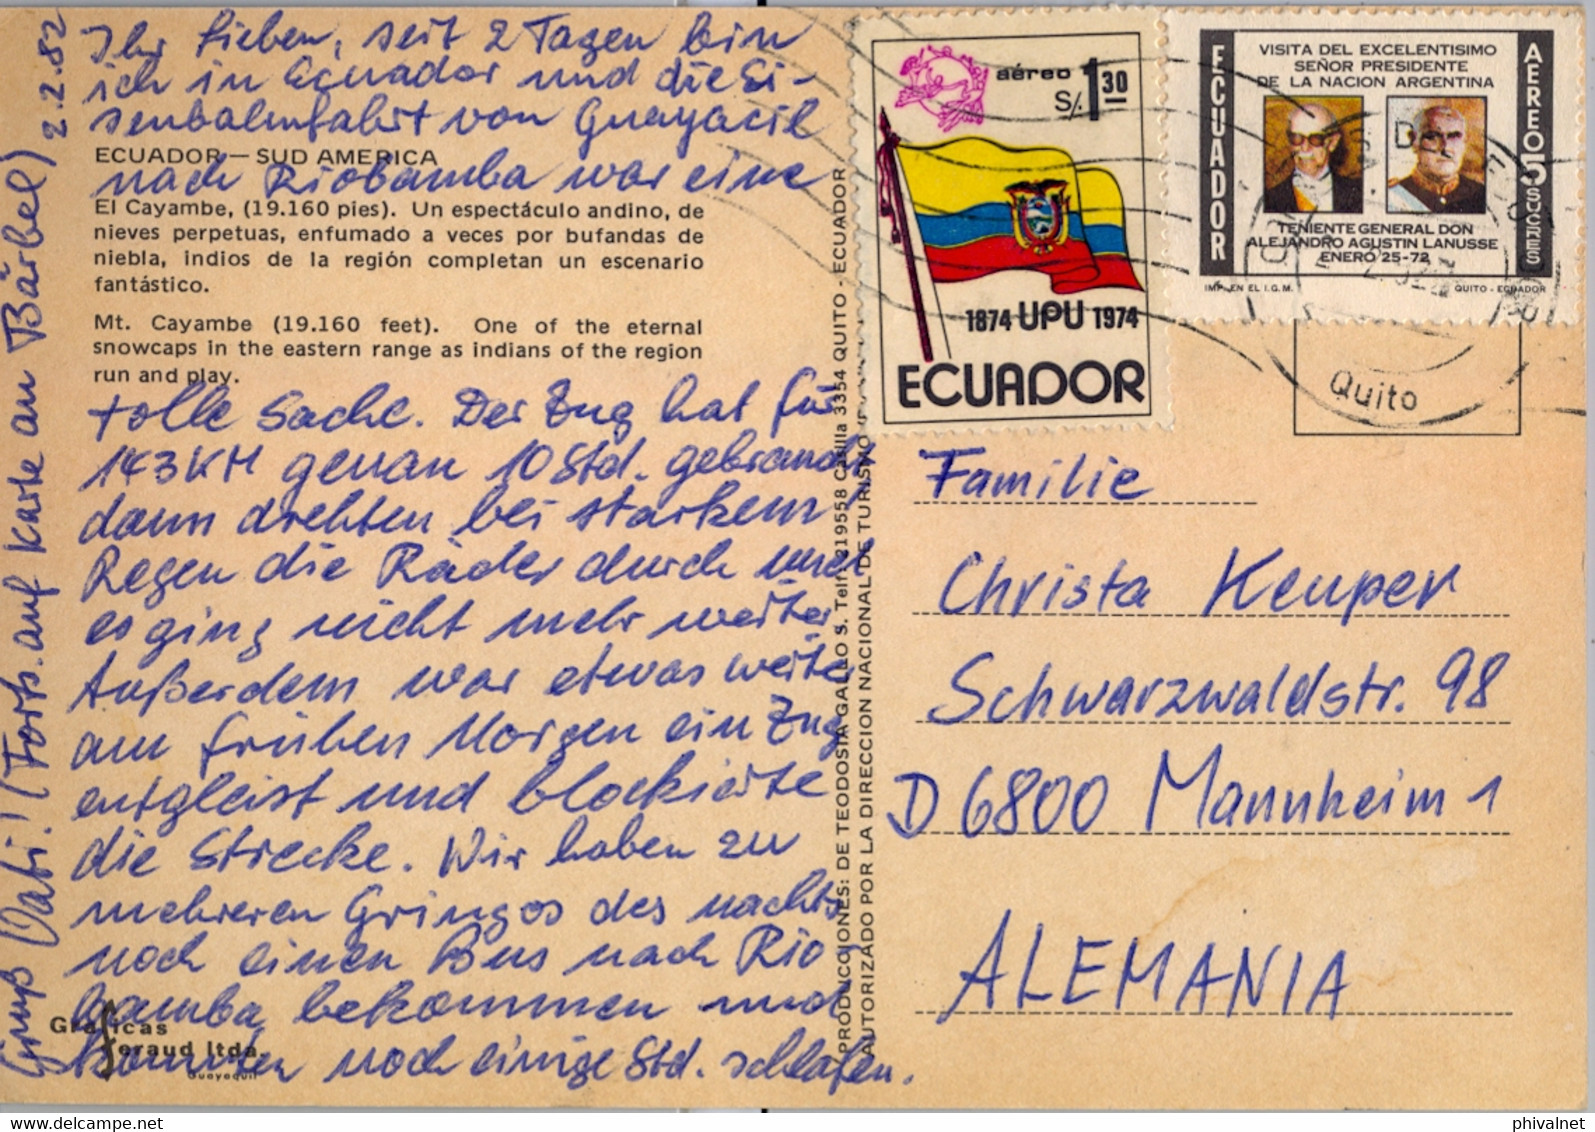 2.2.82
Ihr Lieben, seit 2 Tagen bin
ich in Ecuador und die Ei-
senbahnfahrt von Guayacil
ECUADOR — SUD AMERICA
nach Riobamba war eine
El Cayambe, (19.160 pies). Un espectáculo andino, de
nieves perpetuas, enfumado a veces por bufandas de
niebla, indios de la región completan un escenario
fantástico.
Mt. Cayambe (19.160 feet). One of the eternal
snowcaps in the eastern range as indians of the region
run and play.
tolle Sache. Der Zug hat für
143 KM genau 10 Std. gebraucht,
dann drehten bei starkem
Regen die Räder durch und
es ging nicht mehr weiter
Außerdem war etwas weiter
am frühen Morgen ein Zug
entgleist und blockierte
die Strecke. Wir haben zu
mehreren Gringos des nachts
noch einen Bus nach Rio
bamba bekommen und
konnten noch einige Std. schlafen.
Gruß Vati! (Forts. auf Karte an Bärbel)
Gráficas
feraud ltda.
Guayaquil
PRODUCCIONES: DE TEODOSIA GALLO S. Telf. 219558 Casilla 3354 QUITO - ECUADOR
AUTORIZADO POR LA DIRECCION NACIONAL DE TURISMO
aéreo S/. 1.30
1874 UPU 1974
ECUADOR
ECUADOR
VISITA DEL EXCELENTISIMO
SEÑOR PRESIDENTE
DE LA NACION ARGENTINA
AEREO 5 SUCRES
TENIENTE GENERAL DON
ALEJANDRO AGUSTIN LANUSSE
ENERO 25-72
IMP. EN EL I.G.M. QUITO - ECUADOR
Quito
Familie
Christa Keuper
Schwarzwaldstr. 98
D 6800 Mannheim 1
ALEMANIA
phivalnet